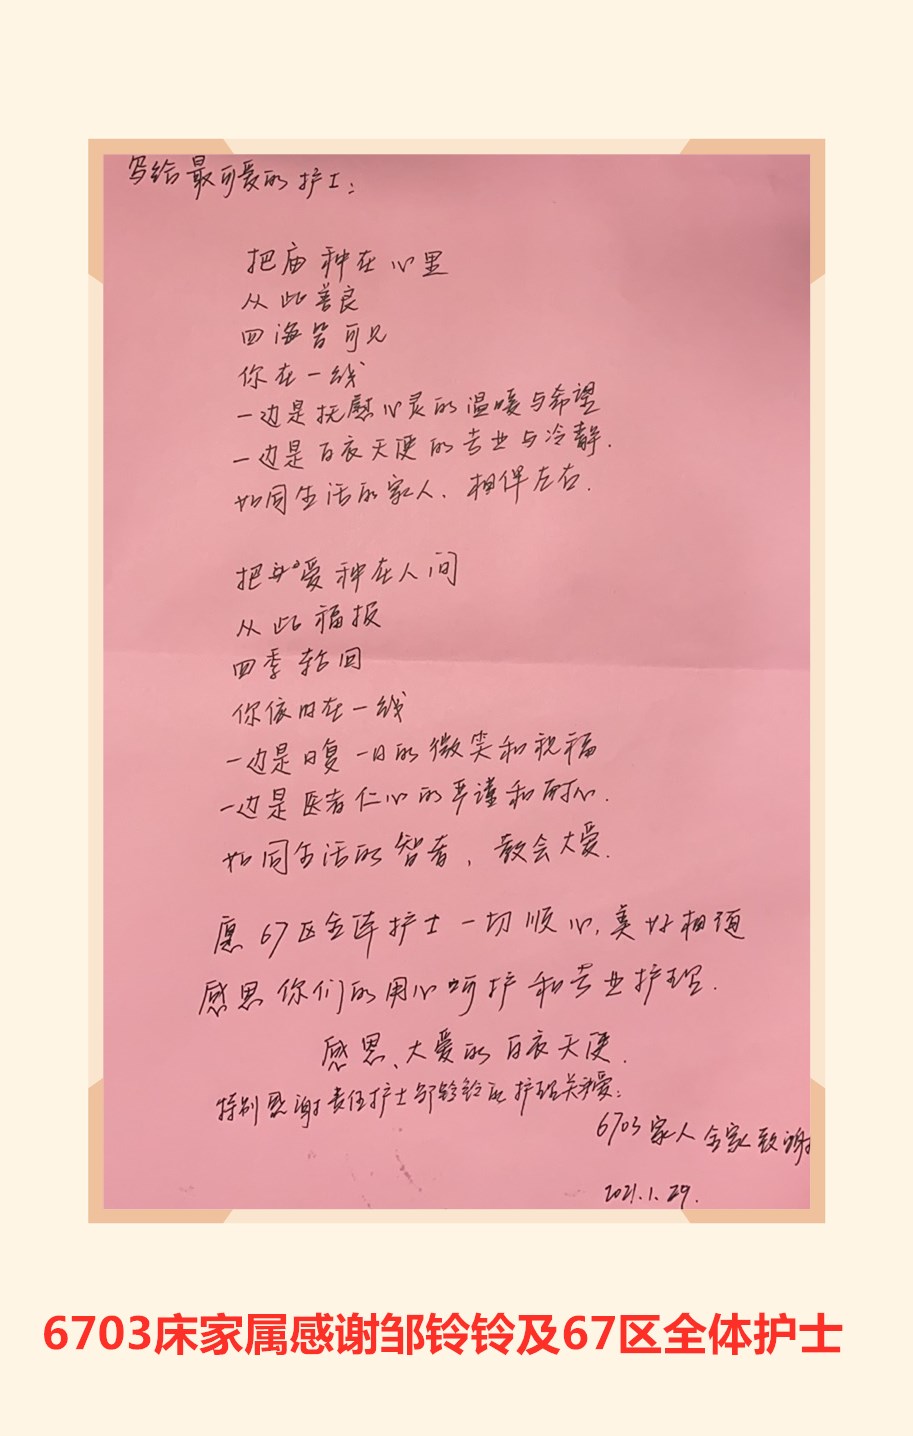 写给最可爱的护士:
把庙种在心里
从此善良
四海皆可见
你在一线
一边是抚慰心灵的温暖与希望
一边是白衣天使的专业与冷静.
如同生活的家人、相伴左右.
把爱种在人间
从此福报
四季轮回
你依旧在一线
一边是日复一日的微笑和祝福
一边是医者仁心的严谨和耐心.
如同生活的智者,教会大爱.
愿67区全体护士一切顺心,美好相随
感恩你们的用心呵护和专业护理.
感恩、大爱的白衣天使.
特别感谢责任护士邹铃铃的护理关爱:
6703家人全家致谢
2021.1.29.
6703床家属感谢邹铃铃及67区全体护士